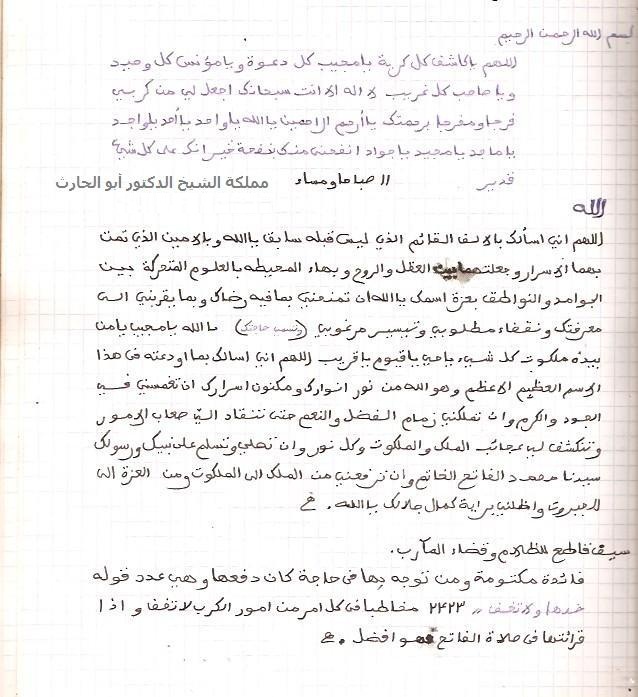 بسم الله الرحمن الرحيم
اللهم ياكاشف كل كربة يا مجيب كل دعوة ويا مؤنس كل وحيد
ويا صاحب كل غريب لا اله الا انت سبحانك اجعل لي من كربي
فرجا ومخرجا برحمتك يا أرحم الراحمين يا الله يا واحد يا أحد يا واجد
يا ماجد يا مجيد يا جواد انفحني منك بنفحة خير انك على كل شيء
قدير 11 صباحا ومساء مملكة الشيخ الدكتور أبو الحارث
الله
اللهم اني اسألك بالالف القائم الذي ليس قبله سابق يا الله وبالامين الذي تمت
بهما الاسرار وجعلتهما بين العقل والروح وبهاء المحيطه بالعلوم المتحركة بين
الجوامد والنواطق بعزة اسمك يا الله ان تمنحني بما فيه رضاك وبما يقربني الى
معرفتك وقضاء مطلوبي وتيسير مرغوبي (وتسمى حاجتك) يا الله يا مجيب يا من
بيده ملكوت كل شيء يا حي يا قيوم يا قريب اللهم اني اسالك بما اودعته في هذا
الاسم العظيم الاعظم وهو الله من نور انوارك ومكنون اسرارك ان تغمسني في
الجود والكرم وان تملكني زمام الفضل والنعم حتى تنقاد اليّ صعاب الامور
وتنكشف لي عجائب الملك والملكوت وكل نور وان تصلي وتسلم على نبيك ورسولك
سيدنا محمد الفاتح الخاتم وان ترفعني من الملك الى الملكوت ومن العزة الى
الجبروت واظلني براية كمال جلالك يا الله .
سيف قاطع للظلام وقضاء المآرب.
فائدة مكتومة ومن توجه بها في حاجة كان دفعها وهي عدد قوله
خذها ولا تخف ،، ٢٤٢٣ مخاطبا في كل امر من امور الكرب لا تخف و اذا
قرائتها في صلاة الفاتح فهو افضل .